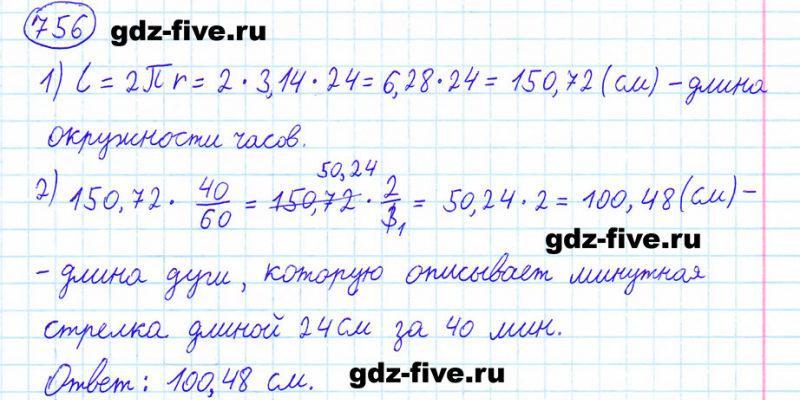 756 gdz-five.ru
1) C = 2πr = 2 · 3,14 · 24 = 6,28 · 24 = 150,72 (см) – длина
окружности часов.
50,24
2) 150,72 · 40/60 = 150,72 · 2/3 1 = 50,24 · 2 = 100,48 (см) –
gdz-five.ru
– длина дуги, которую описывает минутная
стрелка длиной 24 см за 40 мин.
Ответ: 100,48 см. gdz-five.ru